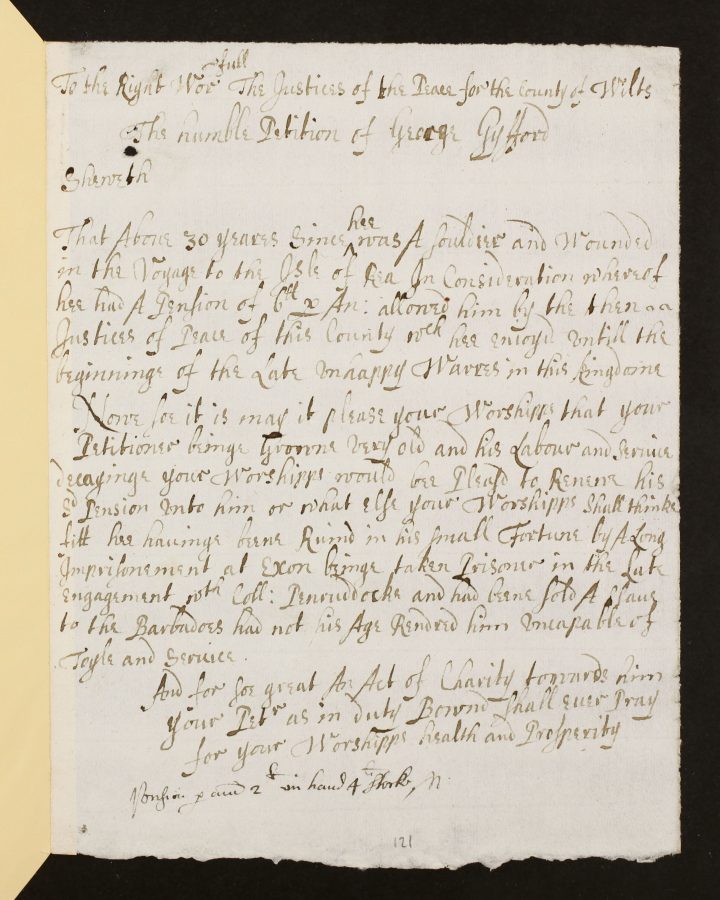 To the Right Wor^full The Justices of the Peace for the County of Wilts
The humble Petition of George Gyfford
Sheweth
That Above 30 yeares Since hee was A souldier and Wounded
in the Voyage to the Isle of Rea In Consideration whereof
hee had A Pension of 6^li p An: allowed him by the then
Justices of Peace of this County w^ch hee enioyd untill the
beginninge of the Late Vnhappy Warres in this Kingdome
Nowe soe it is may it please your Worshipps that your
Petitioner beinge Growne very old and his Labour and Service
decayinge your Worshipps would bee Pleasd to Renewe his
S^d Pension vnto him or what else your Worshipps Shall thinke
fitt hee havinge beene Ruind in his small Fortune by A Long
Imprisonement at Exon beinge taken Prisoner in the Late
Engagement w^th Coll: Penruddocke and had beene sold A Slave
to the Barbadoes had not his Age Rendred him Vncapable of
Toyle and Service.
And for soe great An Act of Charity towards him
your Pet^r as in duty Bownd shall ever Pray
for your Worshipps health and Prosperity
Pension p ann 2^l in hand 4
121